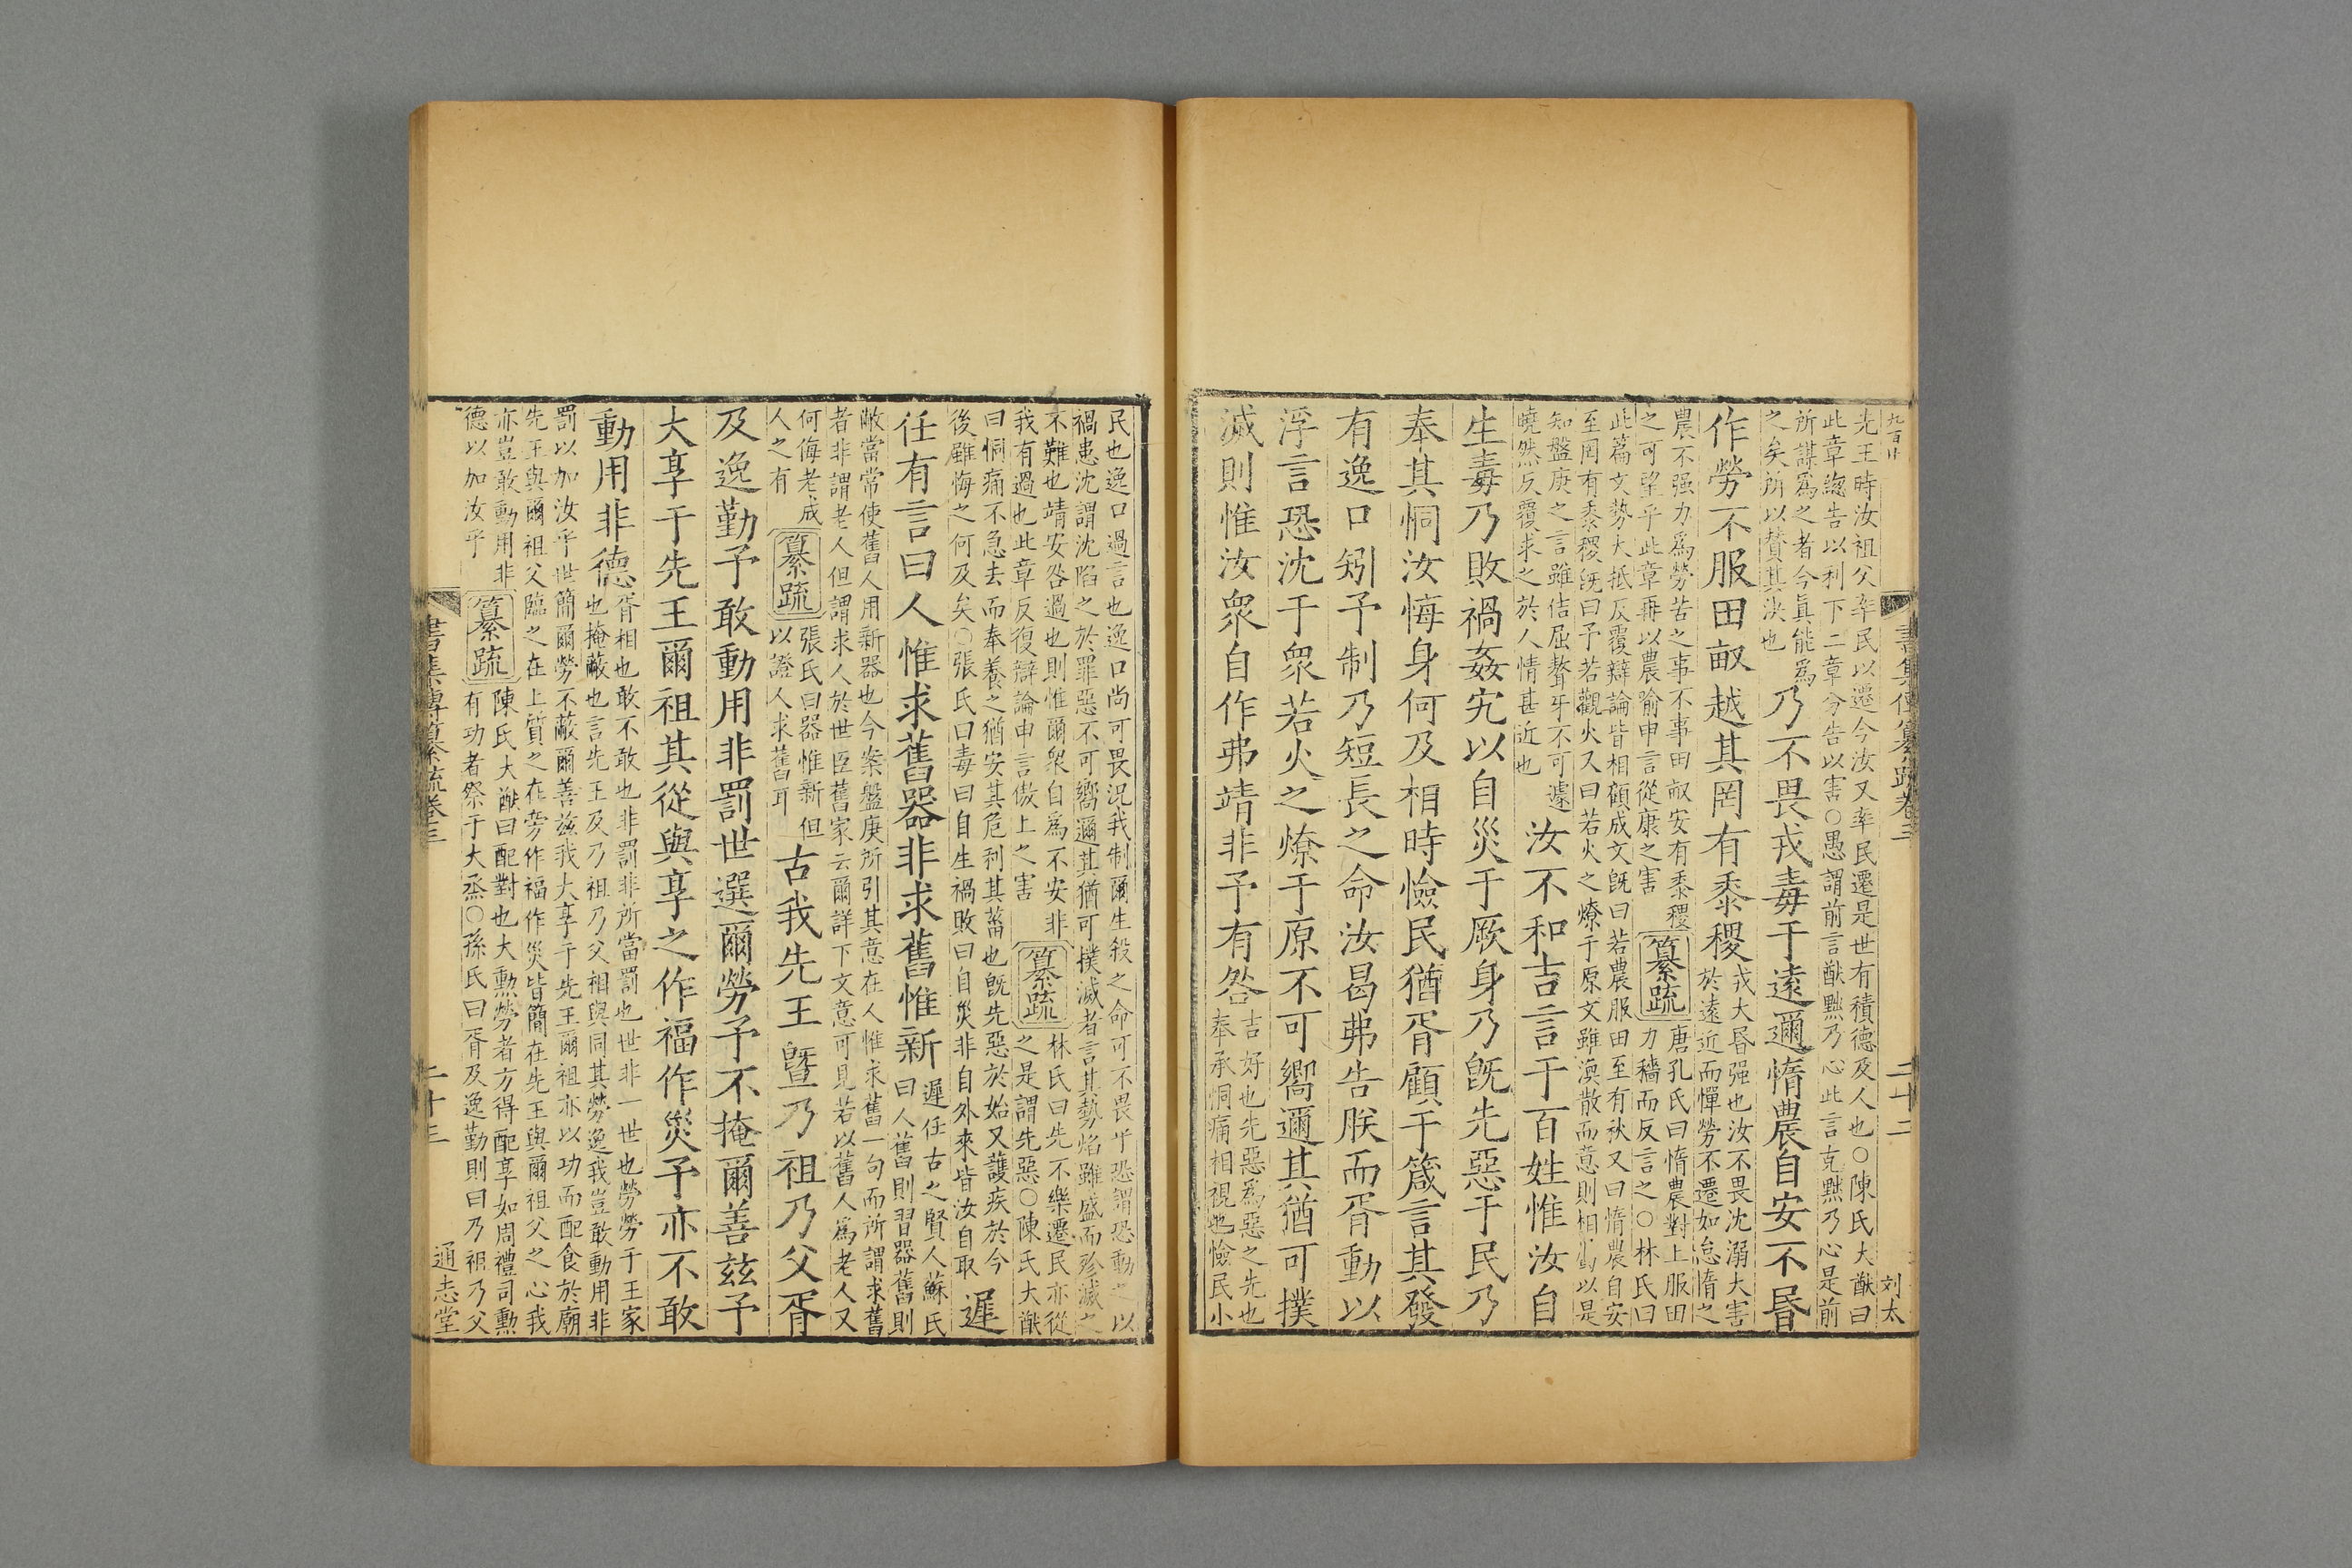 九百廿
書集傳纂疏卷三
二十二
刘太
先王時汝祖父率民以遷今汝又率民遷是世有積德及人也○陳氏大猷曰
此章總告以利下二章分告以害○愚謂前言猷黜乃心此言克黜乃心是前
所謀爲之者今眞能爲
之矣所以贊其決也
乃不畏戎毒于遠邇惰農自安不昬
作勞不服田畝越其罔有黍稷
戎大昬强也汝不畏沈溺大害
於遠近而憚勞不遷如怠惰之
農不强力爲勞苦之事不事田畝安有黍稷
之可望乎此章再以農喻申言從康之害
纂疏
唐孔氏曰惰農對上服田
力穡而反言之○林氏曰
此篇文勢大抵反覆辯論皆相顧成文旣曰若農服田至有秋又曰惰農自安
至罔有黍稷旣曰予若觀火又曰若火之燎于原文雖渙散而意則相爲以是
知盤庚之言雖佶屈聱牙不可遽
曉然反覆求之於人情甚近也
汝不和吉言于百姓惟汝自
生毒乃敗禍姦宄以自災于厥身乃旣先惡于民乃
奉其恫汝悔身何及相時憸民猶胥顧于箴言其發
有逸口矧予制乃短長之命汝曷弗告朕而胥動以
浮言恐沈于衆若火之燎于原不可嚮邇其猶可撲
滅則惟汝衆自作弗靖非予有咎
吉好也先惡爲惡之先也
奉承恫痛相視也憸民小
民也逸口過言也逸口尚可畏況我制爾生殺之命可不畏乎恐謂恐動之以
禍患沈謂沈陷之於罪惡不可嚮邇其猶可撲滅者言其勢焰雖盛而殄滅之
不難也靖安咎過也則惟爾衆自爲不安非
我有過也此章反復辯論申言傲上之害
纂疏
林氏曰先不樂遷民亦從
之是謂先惡○陳氏大猷
曰恫痛不急去而奉養之猶安其危利其菑也旣先惡於始又護疾於今
後雖悔之何及矣○張氏曰毒曰自生禍敗曰自災非自外來皆汝自取
遲
任有言曰人惟求舊器非求舊惟新
遲任古之賢人蘇氏
曰人舊則習器舊則
敝當常使舊人用新器也今案盤庚所引其意在人惟求舊一句而所謂求舊
者非謂老人但謂求人於世臣舊家云爾詳下文意可見若以舊人爲老人又
何侮老成
人之有
纂疏
張氏曰器惟新但
以證人求舊耳
古我先王曁乃祖乃父胥
及逸勤予敢動用非罰世選爾勞予不掩爾善茲予
大享于先王爾祖其從與享之作福作災予亦不敢
動用非德
胥相也敢不敢也非罰非所當罰也世非一世也勞勞于王家
也掩蔽也言先王及乃祖乃父相與同其勞逸我豈敢動用非
罰以加汝乎世簡爾勞不蔽爾善茲我大享于先王爾祖亦以功而配食於廟
先王與爾祖父臨之在上質之在旁作福作災皆簡在先王與爾祖父之心我
亦豈敢動用非
德以加汝乎
纂疏
陳氏大猷曰配對也大勲勞者方得配享如周禮司勲
有功者祭于大烝○孫氏曰胥及逸勤則曰乃祖乃父
書集傳纂疏卷三
二十三
通志堂